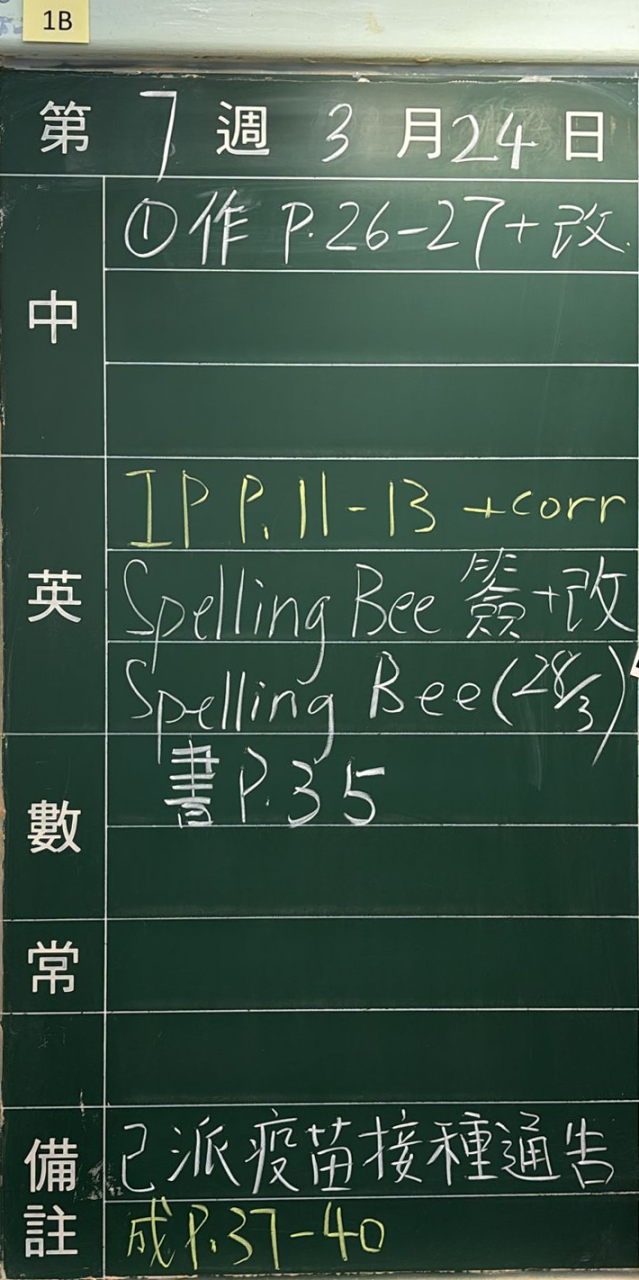 1B
第 7 週 3 月 24 日
中
①作 P.26-27+改.
英
IP P.11-13 +corr
Spelling Bee 簽+改
Spelling Bee(28/3)
數
書P.35
常
備註
已派疫苗接種通告
成P.37-40